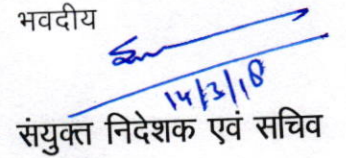 भवदीय
14/3/18
संयुक्त निदेशक एवं सचिव